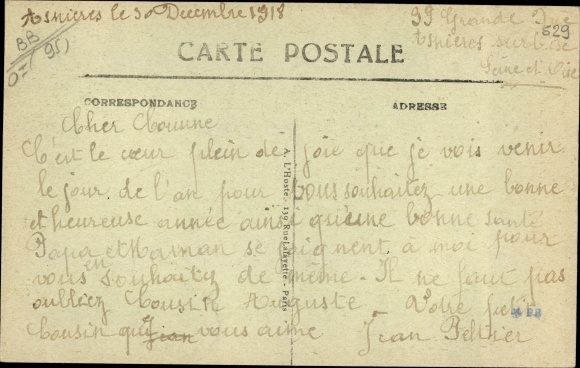 Asnières le 30 Decembre 1918
99 Grande Rue
629
BB
Asnières sur Oise
(95)
Seine et Oise
CARTE POSTALE
CORRESPONDANCE
ADRESSE
Cher Cousine
C'est le cœur plein de joie que je vois venir
le jour de l'an pour vous souhaitez une bonne
et heureuse année ainsi qu'une bonne santé
Papa et Maman se joignent à moi pour
vous en souhaitez de même. Il ne faut pas
oubliez Cousin Auguste Votre petit
Cousin qui Jean vous aime Jean Peltier
A. L'Hoste, 139 Rue Lafayette - Paris